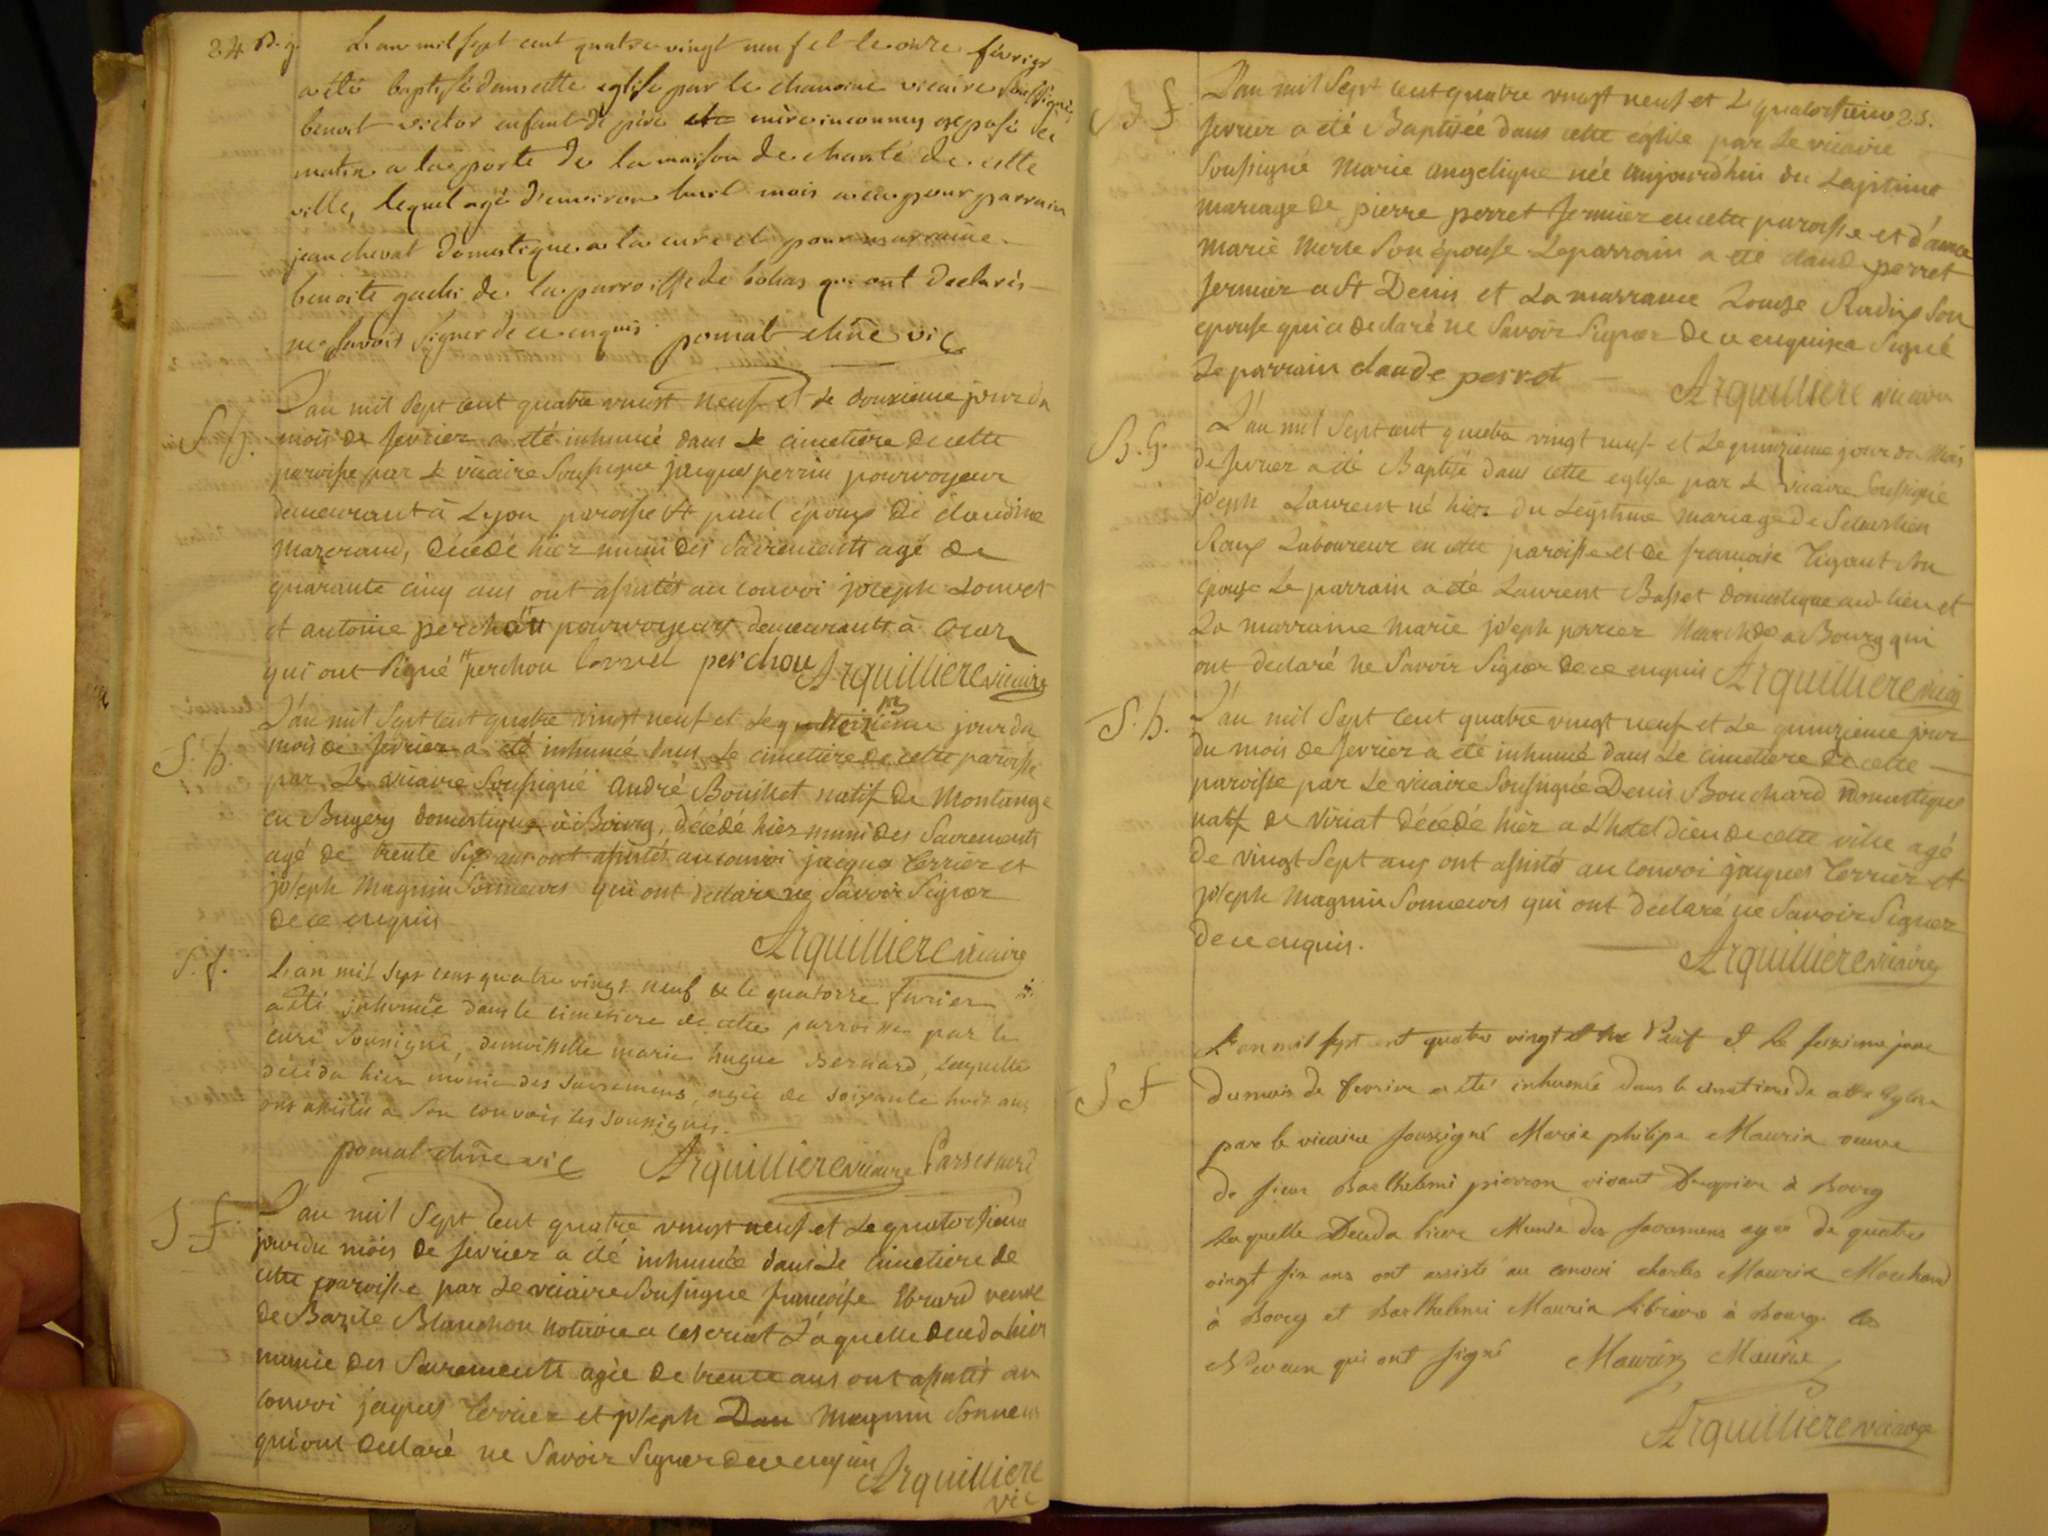 24 B.g. L'an mil sept cent quatre vingt neuf et le onze février
a été baptisé dans cette eglise par le chanoine vicaire soussigné
benoit victor enfant de père et mère inconnus exposé ce
matin a la porte de la maison de charité de cette
ville, lequel agé d'environ huit mois a eu pour parrain
jean chevat domestique a la cure et pour marraine
benoite de la parroisse de bohas qui ont declarés
ne savoir signer de ce enquis pomat chne vic
L'an mil sept cent quatre vingt neuf et le douzieme jour du
S. g. mois de fevrier a été inhumé dans le cimetiere de cette
paroisse par le vicaire soussigné jacques perrin pourvoyeur
demeurant à Lyon paroisse st paul epoux de claudine
Marcrand, décédé hier muni des sacrements agé de
quarante cinq ans ont assistés au convoi joseph Louvet
et antoine perchou pourvoyeurs demeurants à
qui ont signé perchou Louvet perchou Arquilliere vicaire
L'an mil sept cent quatre vingt neuf et le jour du
S. h. mois de fevrier a été inhumé dans le cimetiere de cette paroisse
par le vicaire soussigné andré Bouillet natif de Montange
en Bugey domestique à Bourg, décédé hier muni des sacrements
agé de trente six ans ont assistés au convoi jacque terrier et
joseph Magnin sonneurs qui ont declaré ne savoir signer
de ce enquis
Arquilliere vicaire
S. f. L'an mil sept cens quatre vingt neuf & le quatorze fevrier
a été inhumée dans le cimetiere de cette parroisse par le
curé soussigné, demoiselle marie hugue Bernard, laquelle
décéda hier munie des sacremens, agée de soixante huit ans
ont assistés a son convois les soussignés.
pomat chne vic Arquilliere vicaire
S f L'an mil sept cent quatre vingt neuf et le quatorzieme
jour du mois de fevrier a été inhumée dans le cimetiere de
cette paroisse par le vicaire soussigné francoise Ebrard veuve
de Bazile Blanchon notaire a Ceseriat Laquelle deceda hier
munie des sacrements agée de trente ans ont assistés au
convoi jaques terrier et joseph Dan Magnin sonneurs
qui ont declaré ne savoir signer de ce enquis
Arquilliere
vic
L'an mil sept cent quatre vingt neuf et le quatorzieme 25.
B. f. fevrier a été Baptisée dans cette eglise par le vicaire
soussigné Marie angelique née aujourd'hui du Legitime
mariage de pierre perret fermier en cette paroisse et d'anne
marie son épouse Le parrain a été claude perret
fermier a st Denis et La marraine Louise Rudin son
epouse qui a declaré ne savoir signer de ce enquise signé
Le parrain claude perret
Arquilliere vicaire
L'an mil sept cent quatre vingt neuf et Le quinzieme jour du Mois
B. G. de fevrier a été Baptisé dans cette eglise par le vicaire soussigné
joseph Laurent né hier du Legitime mariage de Sebastien
Roux Laboureur en cette paroisse et de francoise Tigaut son
epouse Le parrain a été Laurent Basset domestique aud lieu et
La marraine Marie joseph perrier Marchde a Bourg qui
ont declaré ne savoir signer de ce enquis Arquilliere vicai
L'an mil sept cent quatre vingt neuf et Le quinzieme jour
S. h. du mois de fevrier a été inhumé dans Le cimetiere de cette
paroisse par Le vicaire soussigné Denis Bouchard domestique
natif de Viriat décédé hier a L'hotel dieu de cette ville agé
de vingt sept ans ont assistés au convoi jacques terrier et
joseph Magnin sonneurs qui ont declaré ne savoir signer
de ce enquis.
Arquilliere vicaire
L'an mil sept cent quatre vingt et Neuf & le seizieme jour
S f du mois de Fevrier a été inhumée dans le cimetiere de cette Eglise
par le vicaire soussigné Marie philipe Maurin veuve
de sieur Barthelemi pierron vivant à Bourg
laquelle Deceda hier Munie des sacremens agee de quatre
vingt six ans ont assisté au convoi charles Maurin Marchand
à Bourg et Barthelemi Maurin libraire à Bourg les
Neveux qui ont signé Maurin Maurin
Arquilliere vicaire